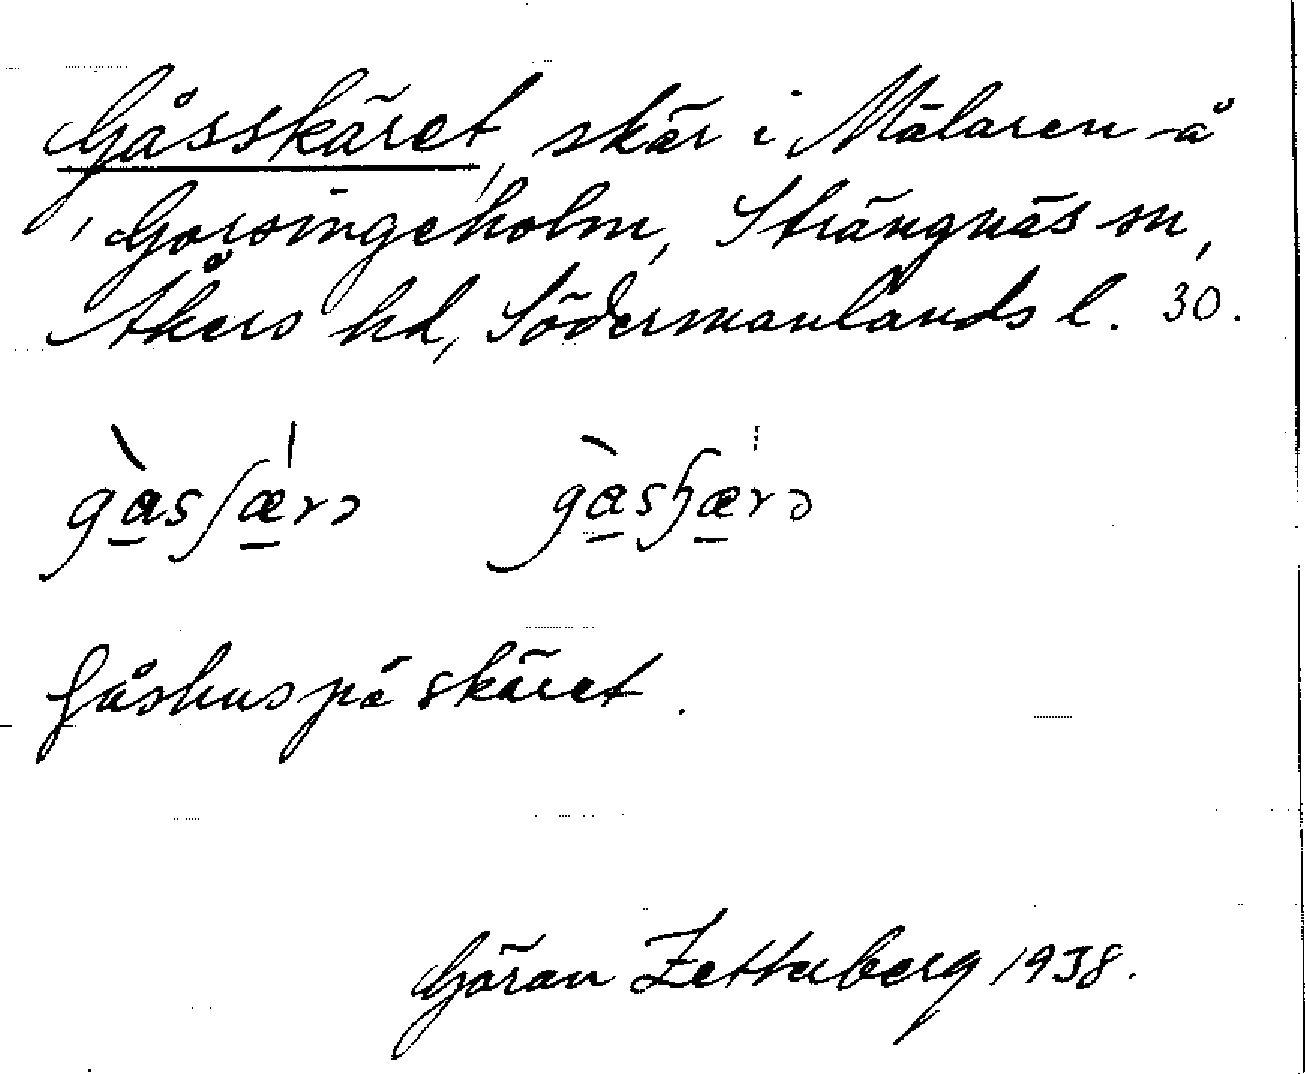 Gåsskäret, skär i Mälaren å
Gorsingeholm, Strängnäs sn,
Åkers hd, Södermanlands l. 30.
gàsʃærə gàsɧærə
Gåshus på skäret.
Göran Zetterberg 1938.